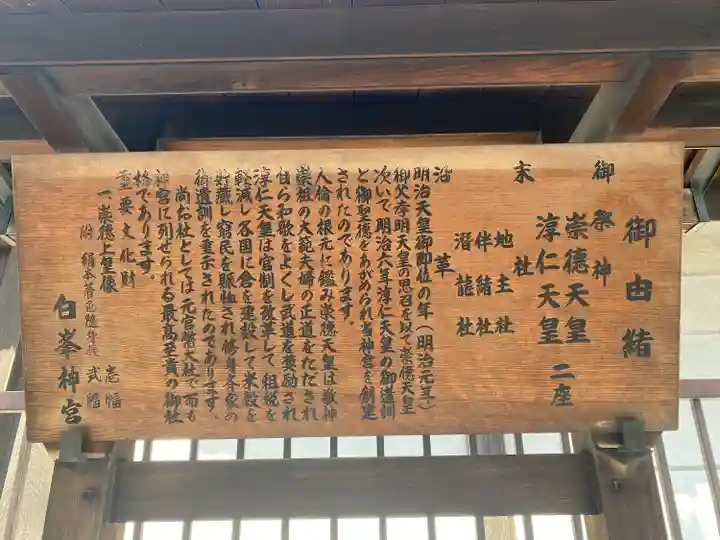 御由緒
御祭神
崇徳天皇
淳仁天皇 二座
末社
地主社
伴緒社
潛龍社
沿革
明治天皇御即位の年（明治元年）
御父孝明天皇の思召を以て崇徳天皇
次いで明治六年淳仁天皇の御遺訓
と御聖徳をあがめられ当神宮を創建
されたのであります。
人倫の根元に鑑み崇徳天皇は敬神
崇祖の大範夫婦の正道をたださ れ
甘ら和歌をよくし武道を奨励され
淳仁天皇は官制を改革して租税を
軽減し各国に倉を建設して米穀を
貯蔵し窮民を賑恤され修身斉家の
御遺訓を垂示されたのであります。
尚お社としては元官幣大社で而も
神宮に列せられる最高至貴の御社
格であります。
重要文化財
一、崇徳上皇像 壱幅
附 絹本著色随身像 弍幅
白峯神宮